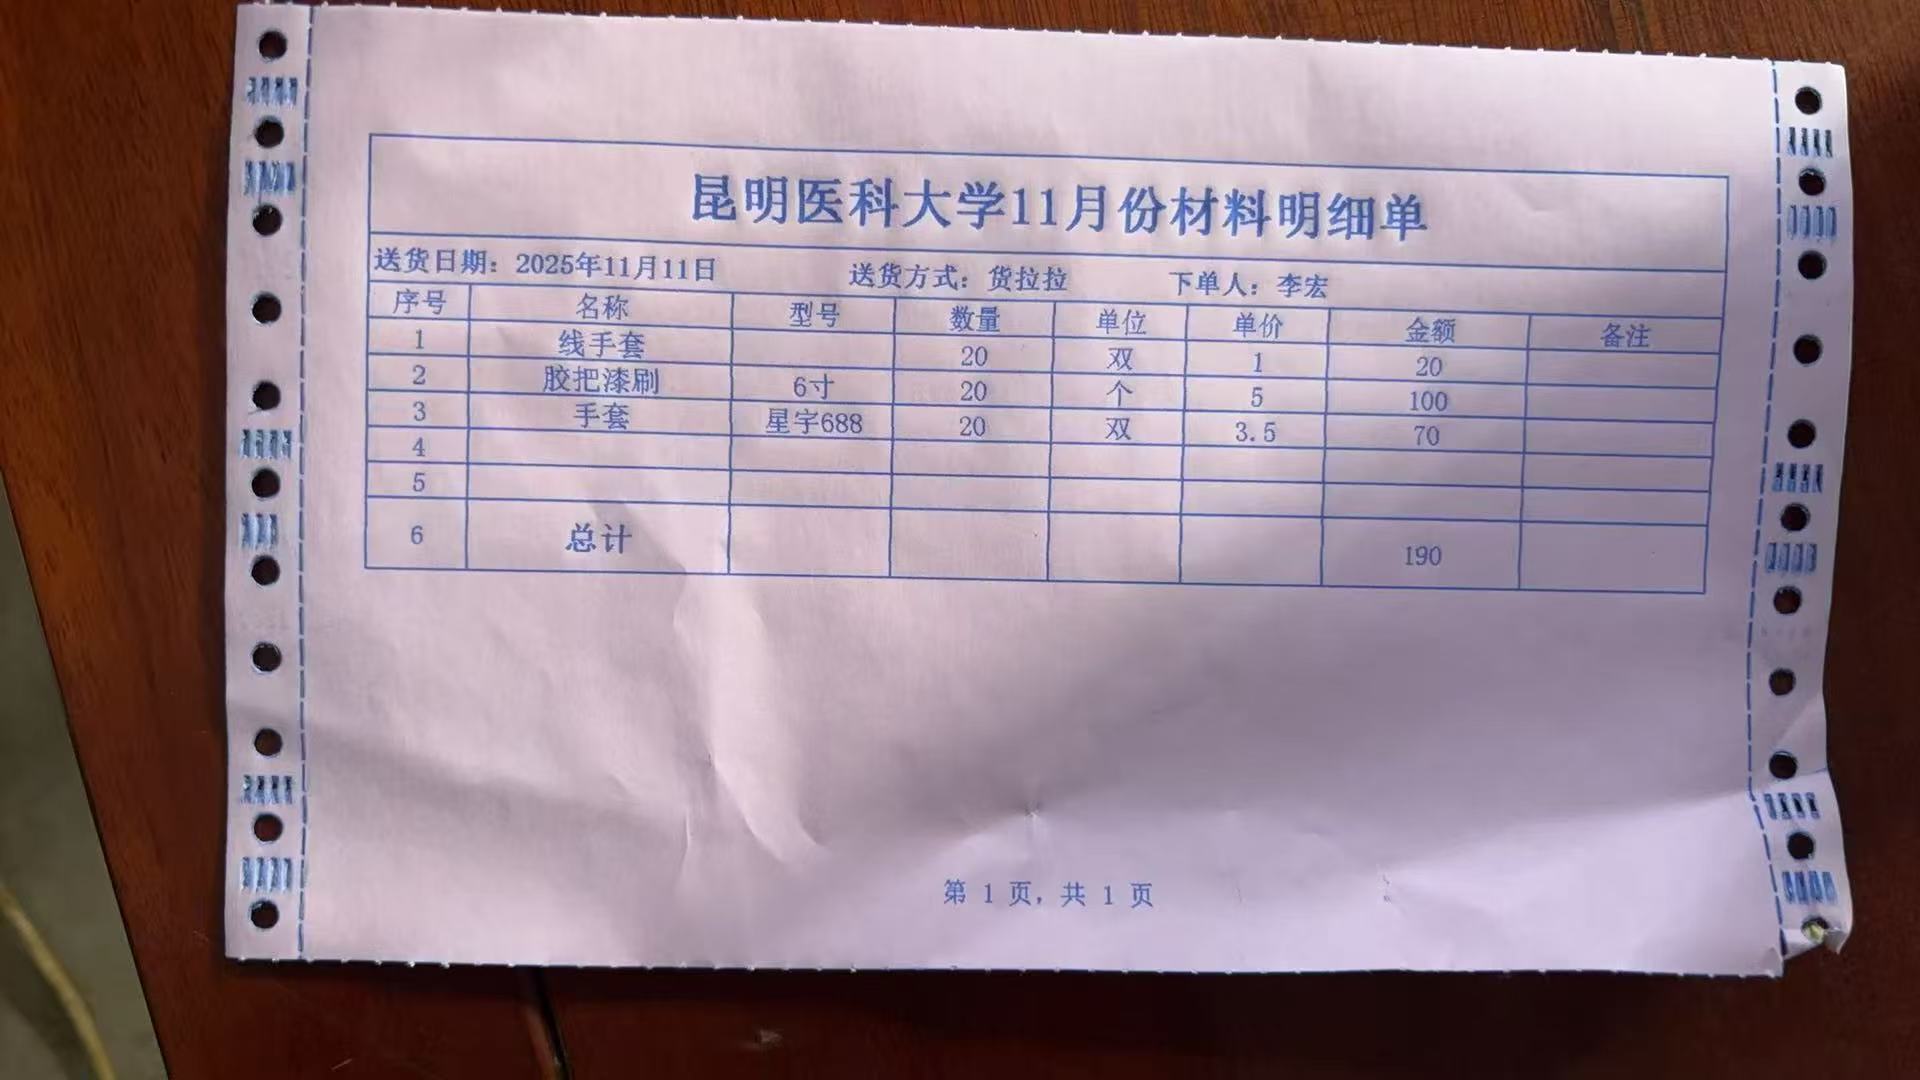 昆明医科大学11月份材料明细单
送货日期：2025年11月11日 送货方式：货拉拉 下单人：李宏
序号 名称 型号 数量 单位 单价 金额 备注
1 线手套 20 双 1 20
2 胶把漆刷 6寸 20 个 5 100
3 手套 星宇688 20 双 3.5 70
4
5
6 总计 190
第 1 页，共 1 页